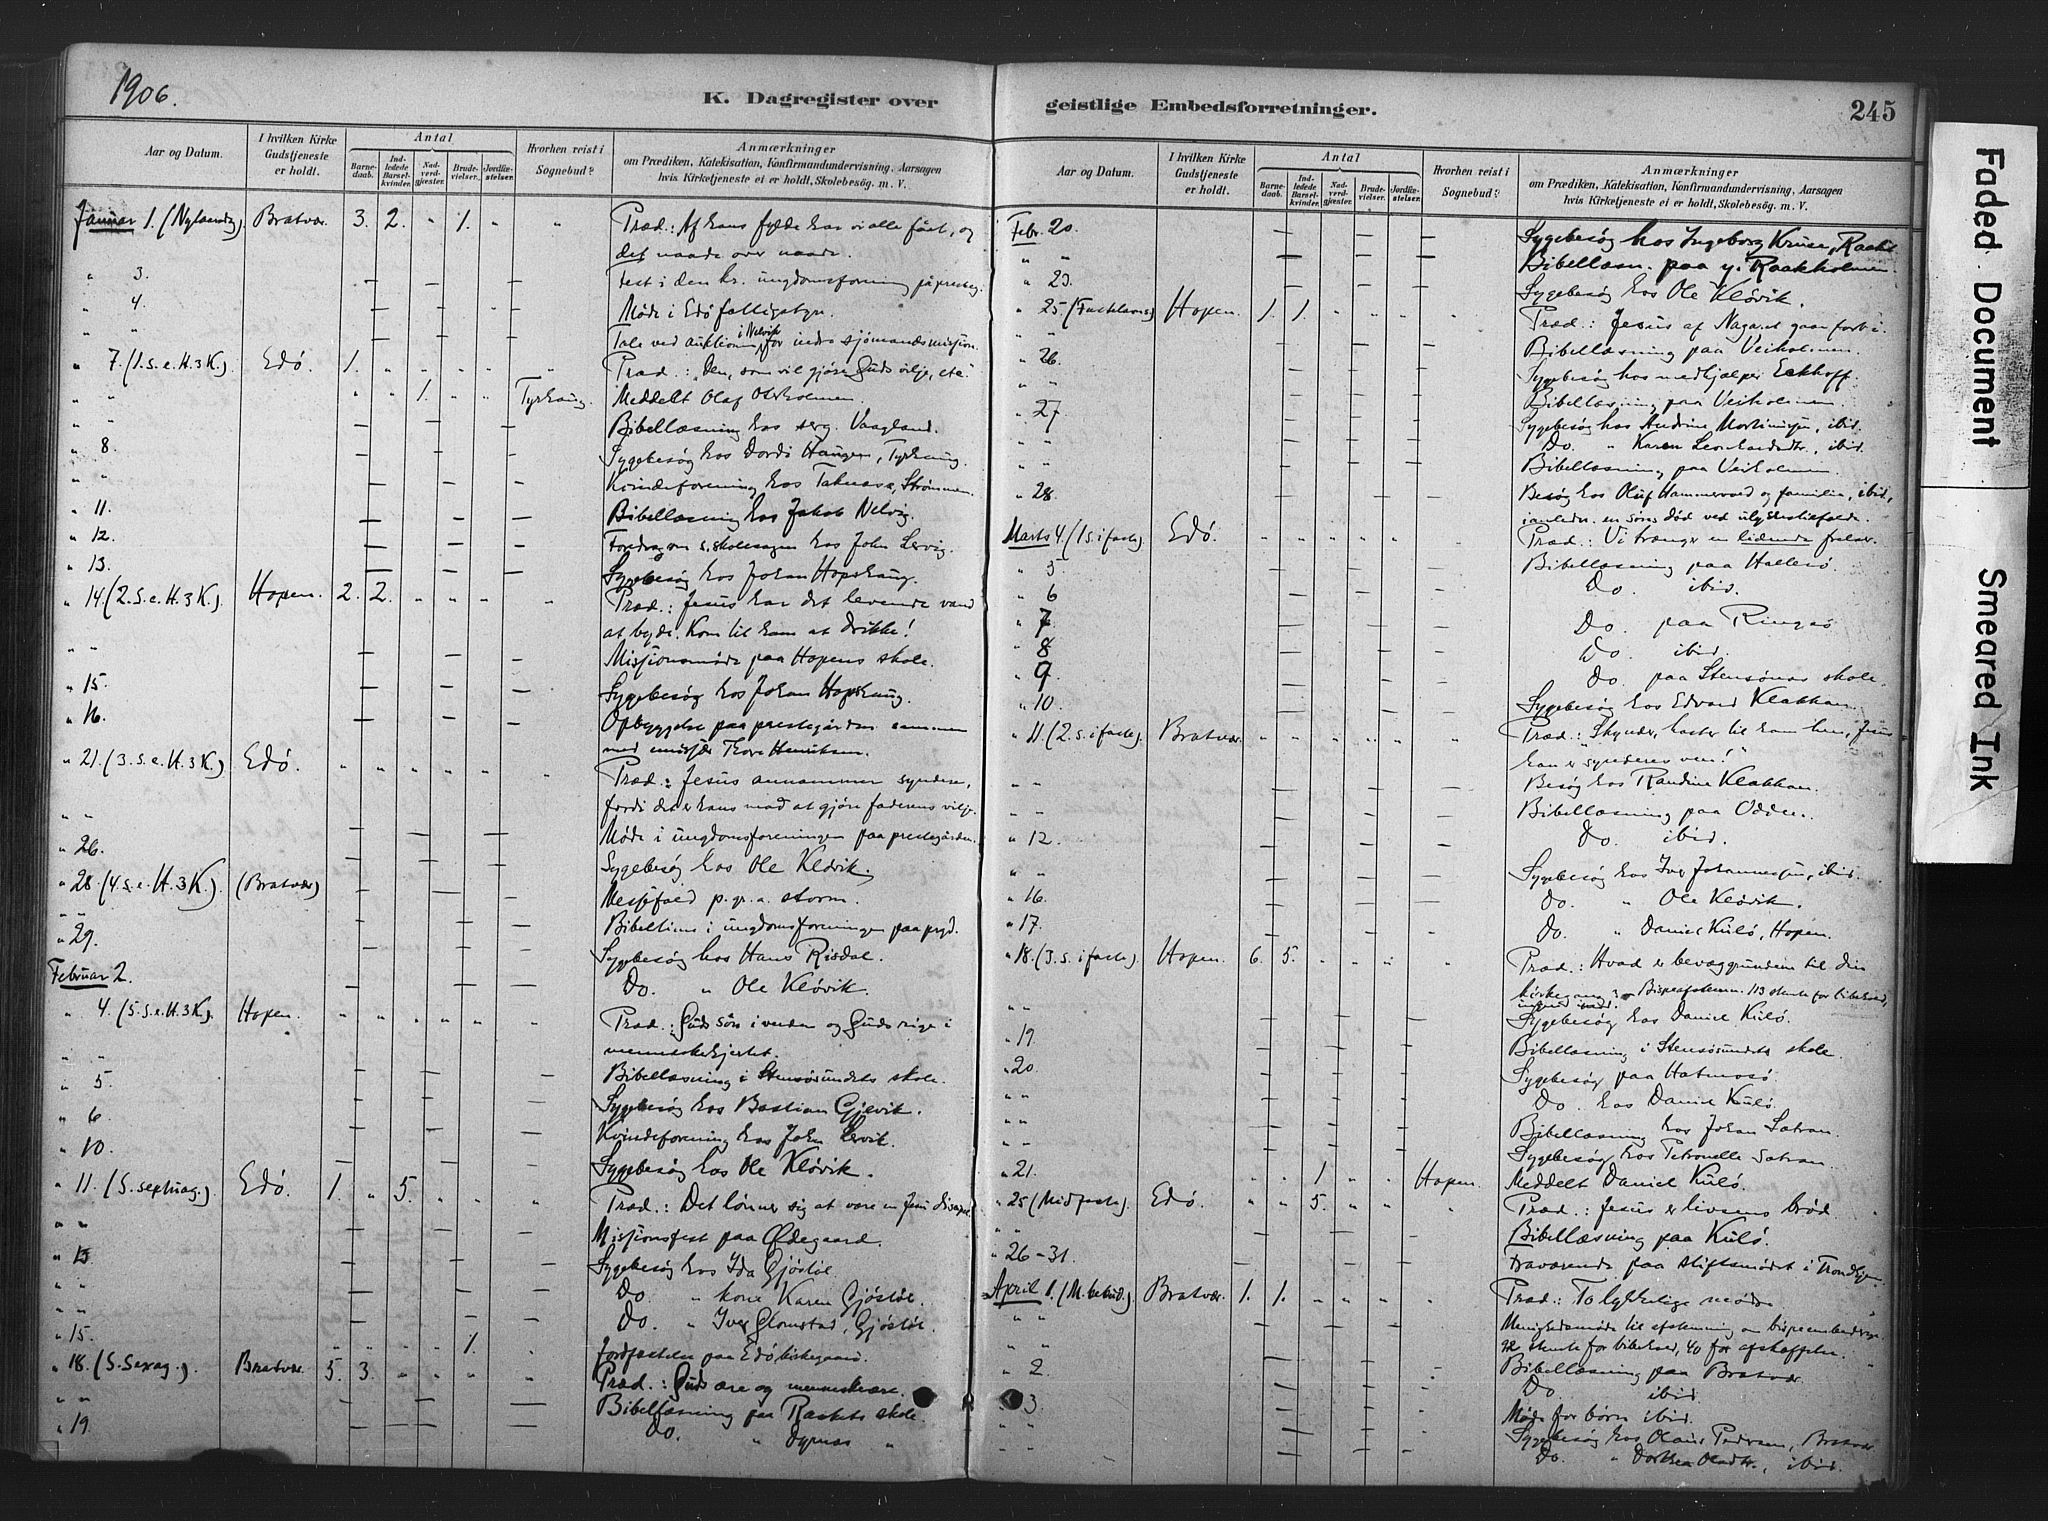 1906.
K. Dagregister over geistlige Embedsforretninger.
245
Aar og Datum.
I hvilken Kirke Gudstjeneste er holdt.
Antal
Barnedaab.
Indledede Barselkvinder.
Nadverdgjester.
Brudevielser.
Jordfæstelser.
Hvorhen reist i Sognebud?
Anmærkninger
om Prædiken, Katekisation, Konfirmandundervisning, Aarsagen
hvis Kirketjeneste ei er holdt, Skolebesøg. m. V.
Januar 1. Bratvær 3. 2. " 1. " " Præd.: Af hans fylde har vi alle fået, og
det naade over naade.
" 3. Fest i den kr. ungdomsforening på
" 4. Møde i Edø
" " Tale ved auktionen i Nelvik for indre sjömandsmission.
" 7. (1. S. e. H. 3 K.) Edö. 1. " " " " " Præd.: "Den, som vil gjøre Guds vilje, etc."
" " 1. Meddelt Olaf
" " Bibellæsning hos serg. Vaagland.
" 8. Sygebesøg hos Dordi Haugen,
" " Kvindeforening hos
" 11. Bibellæsning hos Jakob Nelvig.
" 12. Foredrag om s. skolesagen hos John Lervig.
" 13. Sygebesøg hos Johan Hopshaug.
" 14. (2. S. e. H. 3 K.). Hopen. 2. 2. " " " " Præd.: Jesus har det levende vand
at byde. Kom til ham at drikke!
" " Missionsmøde paa Hopens skole.
" 15. Sygebesøg hos Johan Hopshaug.
" 16. Opbyggelse paa prestegården sammen
med Thore Henriksen.
" 21. (3. S. e. H. 3 K.) Edö. " " " " " " Præd.: Jesus annammer syndere,
fordi det er hans mad at gjøre faderens vilje.
" " Møde i ungdomsforeningen paa prestegården.
" 26. Sygebesøg hos Ole Kløvik.
" 28. (4. S. e. H. 3 K.). (Bratvær) Messefald p. gr. a. storm.
" " i ungdomsforeningen paa
" 29. Sygebesøg hos Hans Risdal.
Februar 2. Do. " Ole Kløvik.
" 4. (5. S. e. H. 3 K.). Hopen. " " " " " " Præd.: Guds i verden og Guds rige i
menneskehjertet.
" " Bibellæsning i Stensøsundets skole.
" 5. Sygebesøg hos Bastian Gjevik.
" 6. Kvindeforening hos John Lervik.
" 10. Sygebesøg hos Ole Kløvik.
" 11. (S. septuag.). Edö. 1. " 5. " " " Præd.: Det lönner sig at være en Jesu discipel.
" " Missionsfest paa Ødegaard.
" 13. Sygebesøg hos Ida Gjøstøl.
" " Do. " kone Karen Gjøstøl.
" " Do. " Iver Glomstad, Gjøstøl.
" 15. " " " " 1. Jordfæstelse paa Edø kirkegaard.
" 18. (S. Sexag.). Bratvær. 5. 3. " " " " Præd.: Guds ære og menneskeære.
" " Bibellæsning paa Raakets skole.
" 19. Do. " "
Aar og Datum.
I hvilken Kirke Gudstjeneste er holdt.
Antal
Barnedaab.
Indledede Barselkvinder.
Nadverdgjester.
Brudevielser.
Jordfæstelser.
Hvorhen reist i Sognebud?
Anmærkninger
om Prædiken, Katekisation, Konfirmandundervisning, Aarsagen
hvis Kirketjeneste ei er holdt, Skolebesøg. m. V.
Febr. 20. Sygebesøg hos Ingeborg Kruse,
" " Bibellæsn. paa y. Raakholmen.
" 23. Sygebesøg hos Ole Kløvik.
" 25. (Fastelavns) Hopen. 1. 1. " " " " Præd.: Jesus af Nazaret gaar forbi.
" " Bibellæsning paa Veiholmen.
" 26. Sygebesøg hos medhjælper Eckhoff.
" " Bibellæsning paa Veiholmen.
" 27. Sygebesøg hos Andrine, ibid.
" " Do. " Karen, ibid.
" " Bibellæsning paa Veiholmen.
" 28. Besøg hos Oluf Hammervold og familie, ibid.,
i anledn. en söns död ved ulykkestilfælde.
Marts 4. (1 S. i faste). Edö. " " " " " " Præd.: Vi trænger en lidende frelser.
" 5 Bibellæsning paa
" 6 Do. ibid.
" 7. Do. paa Ringsø
" 8. Do. ibid.
" 9. Do. paa Stensønes skole.
" 10. Sygebesøg hos Edvard Klakken.
" 11. (2. S. i faste). Bratvær. " " " " " " Præd.: Skynder, haster til ham hen, Jesus
han er synderes ven!"
" " Besøg hos Randine Klakken.
" " Bibellæsning paa Odden.
" 12. Do. ibid.
" " Sygebesøg hos Iver Johannessen, ibid.
" 16. Do. " Ole Kløvik.
" 17. Do. " Daniel Kulø, Hopen.
" 18. (3. S. i faste). Hopen. 6. 5. " " " " Præd.: Hvad er bevæggrunden til din
kirkegang? 113 stemte for bibehold,
ingen imod.
" " Sygebesøg hos Daniel Kulø.
" 19. Bibellæsning i Stensøsundets skole.
" 20. Sygebesøg paa
" " Do. hos Daniel Kulø.
" " Bibellæsning hos Johan Satran.
" " Sygebesøg hos Petronelle Satran.
" 21. " " 1 " " Hopen. Meddelt Daniel Kulø.
" 25 (Midfaste). Edö. " " 5. " " " Præd.: Jesus er livsens bröd.
" " Bibellæsning paa Kulø.
" 26-31. Fraværende paa stiftsmödet i Trondhjem.
April 1. (M. bebud.). Bratvær. 1. 1. " " " " Præd.: To lykkelige møder
" " Menighedsmøde til afstemning om
22 stemte for bibehold, 40 for afskaffelse.
" 2 Bibellæsning paa Bratvær.
" " Do. ibid.
" 3. Møde for børn ibid.
" " Sygebesøg hos Pedersen, Bratvær
" " Do. " Dorthea, ibid.
Faded Document
Smeared Ink